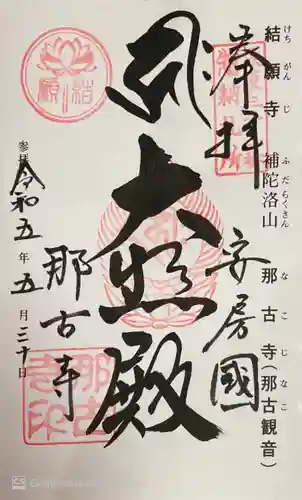 結願寺 補陀洛山 那古寺(那古観音)
けちがんじ ふだらくさん なこじなこ
奉拝
安房國
大悲殿
那古寺
参拝 令和五年五月三十日
結願
那古寺印